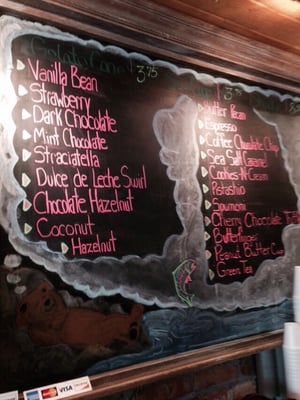 Gelato Cone
3.75
Vanilla Bean
Strawberry
Dark Chocolate
Mint Chocolate
Straciatella
Dulce de Leche Swirl
Chocolate Hazelnut
Coconut
Hazelnut
3.75
Butter Pecan
Espresso
Coffee Chocolate Chip
Sea Salt Caramel
Cookies-N-Cream
Pistashio
Spumoni
Cherry Chocolate
Butterfinger
Peanut Butter Cup
Green Tea
VISA